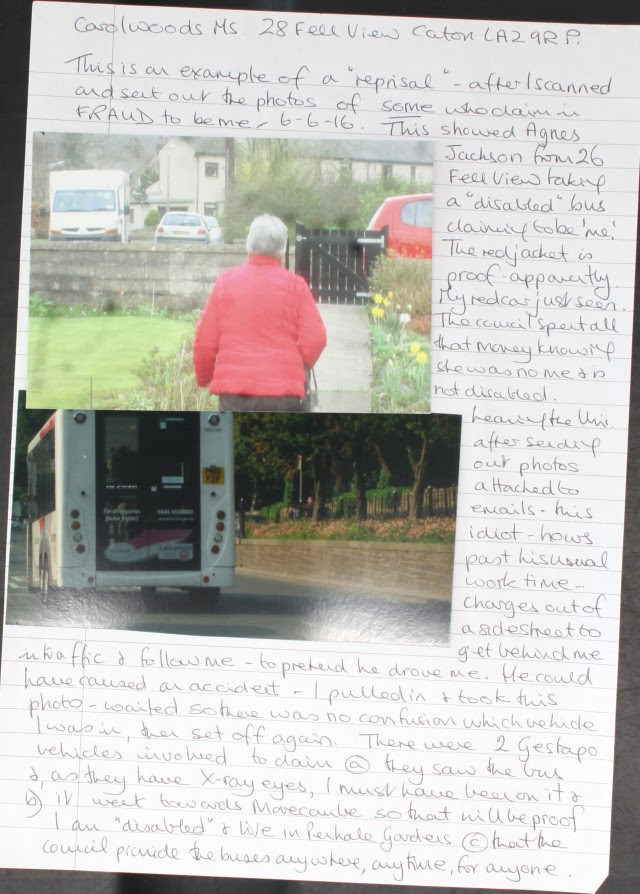 Carol Woods Ms. 28 Fell View Caton LA2 9RP.
This is an example of a "reprisal" - after I scanned
and sent out the photos of some who claim in
FRAUD to be me - 6-6-16. This showed Agnes
Jackson from 26
Fell View taking
a "disabled" bus
claiming to be 'me'.
The red jacket is
proof - apparently.
My red car just seen.
The council spent all
that money knowing
she was no me & is
not disabled.
leaving the Uni.
after sending
out photos
attached to
emails - this
idiot - hours
past his usual
work time -
charges out of
a sidestreet to
get behind me
in traffic & follow me - to pretend he drove me. He could
have caused an accident - I pulled in & took this
photo - waited so there was no confusion which vehicle
I was in, then set off again. There were 2 Gestapo
vehicles involved to claim (a) they saw the bus
&, as they have X-ray eyes, I must have been on it &
b) it went towards Morecambe so that will be proof
I am "disabled" & live in Penhale Gardens (c) that the
council provide the buses anywhere, anytime, for anyone.